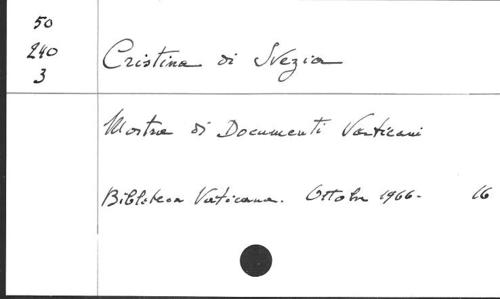 50
240
3
Cristina di Svezia
Mostra di Documenti Vaticani
Biblioteca Vaticana. Ottobre 1966- 16